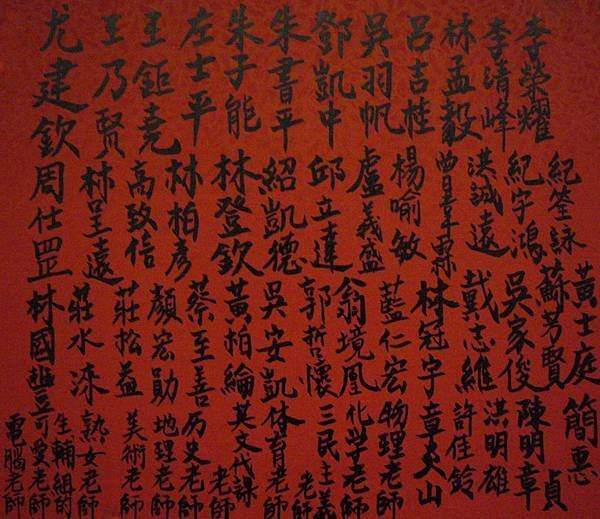 李榮耀
李清峰
林孟毅
呂吉桂
吳羽帆
鄧凱中
朱書平
朱子能
左士平
王鉅堯
王乃賢
尤建欽
紀筌詠
紀宇鴻
洪誠遠
楊喻敏
盧義盛
邱立達
紹凱德
林登欽
林柏彥
高致信
林呈遠
周仕罡
黃士庭
蘇芳賢
吳家俊
戴志維
林冠宇
藍仁宏
翁境凰
郭哲懷
吳安凱
黃柏綸
蔡至善
顏宏勛
莊松益
莊水
林國
簡惠貞
陳明章
洪明雄
許佳鈴
章夫山
物理老師
化学老師
三民主義老師
体育老師
英文代課老師
历史老師
地理老師
美術老師
熟女老師
生輔組的可愛老師
電腦老師